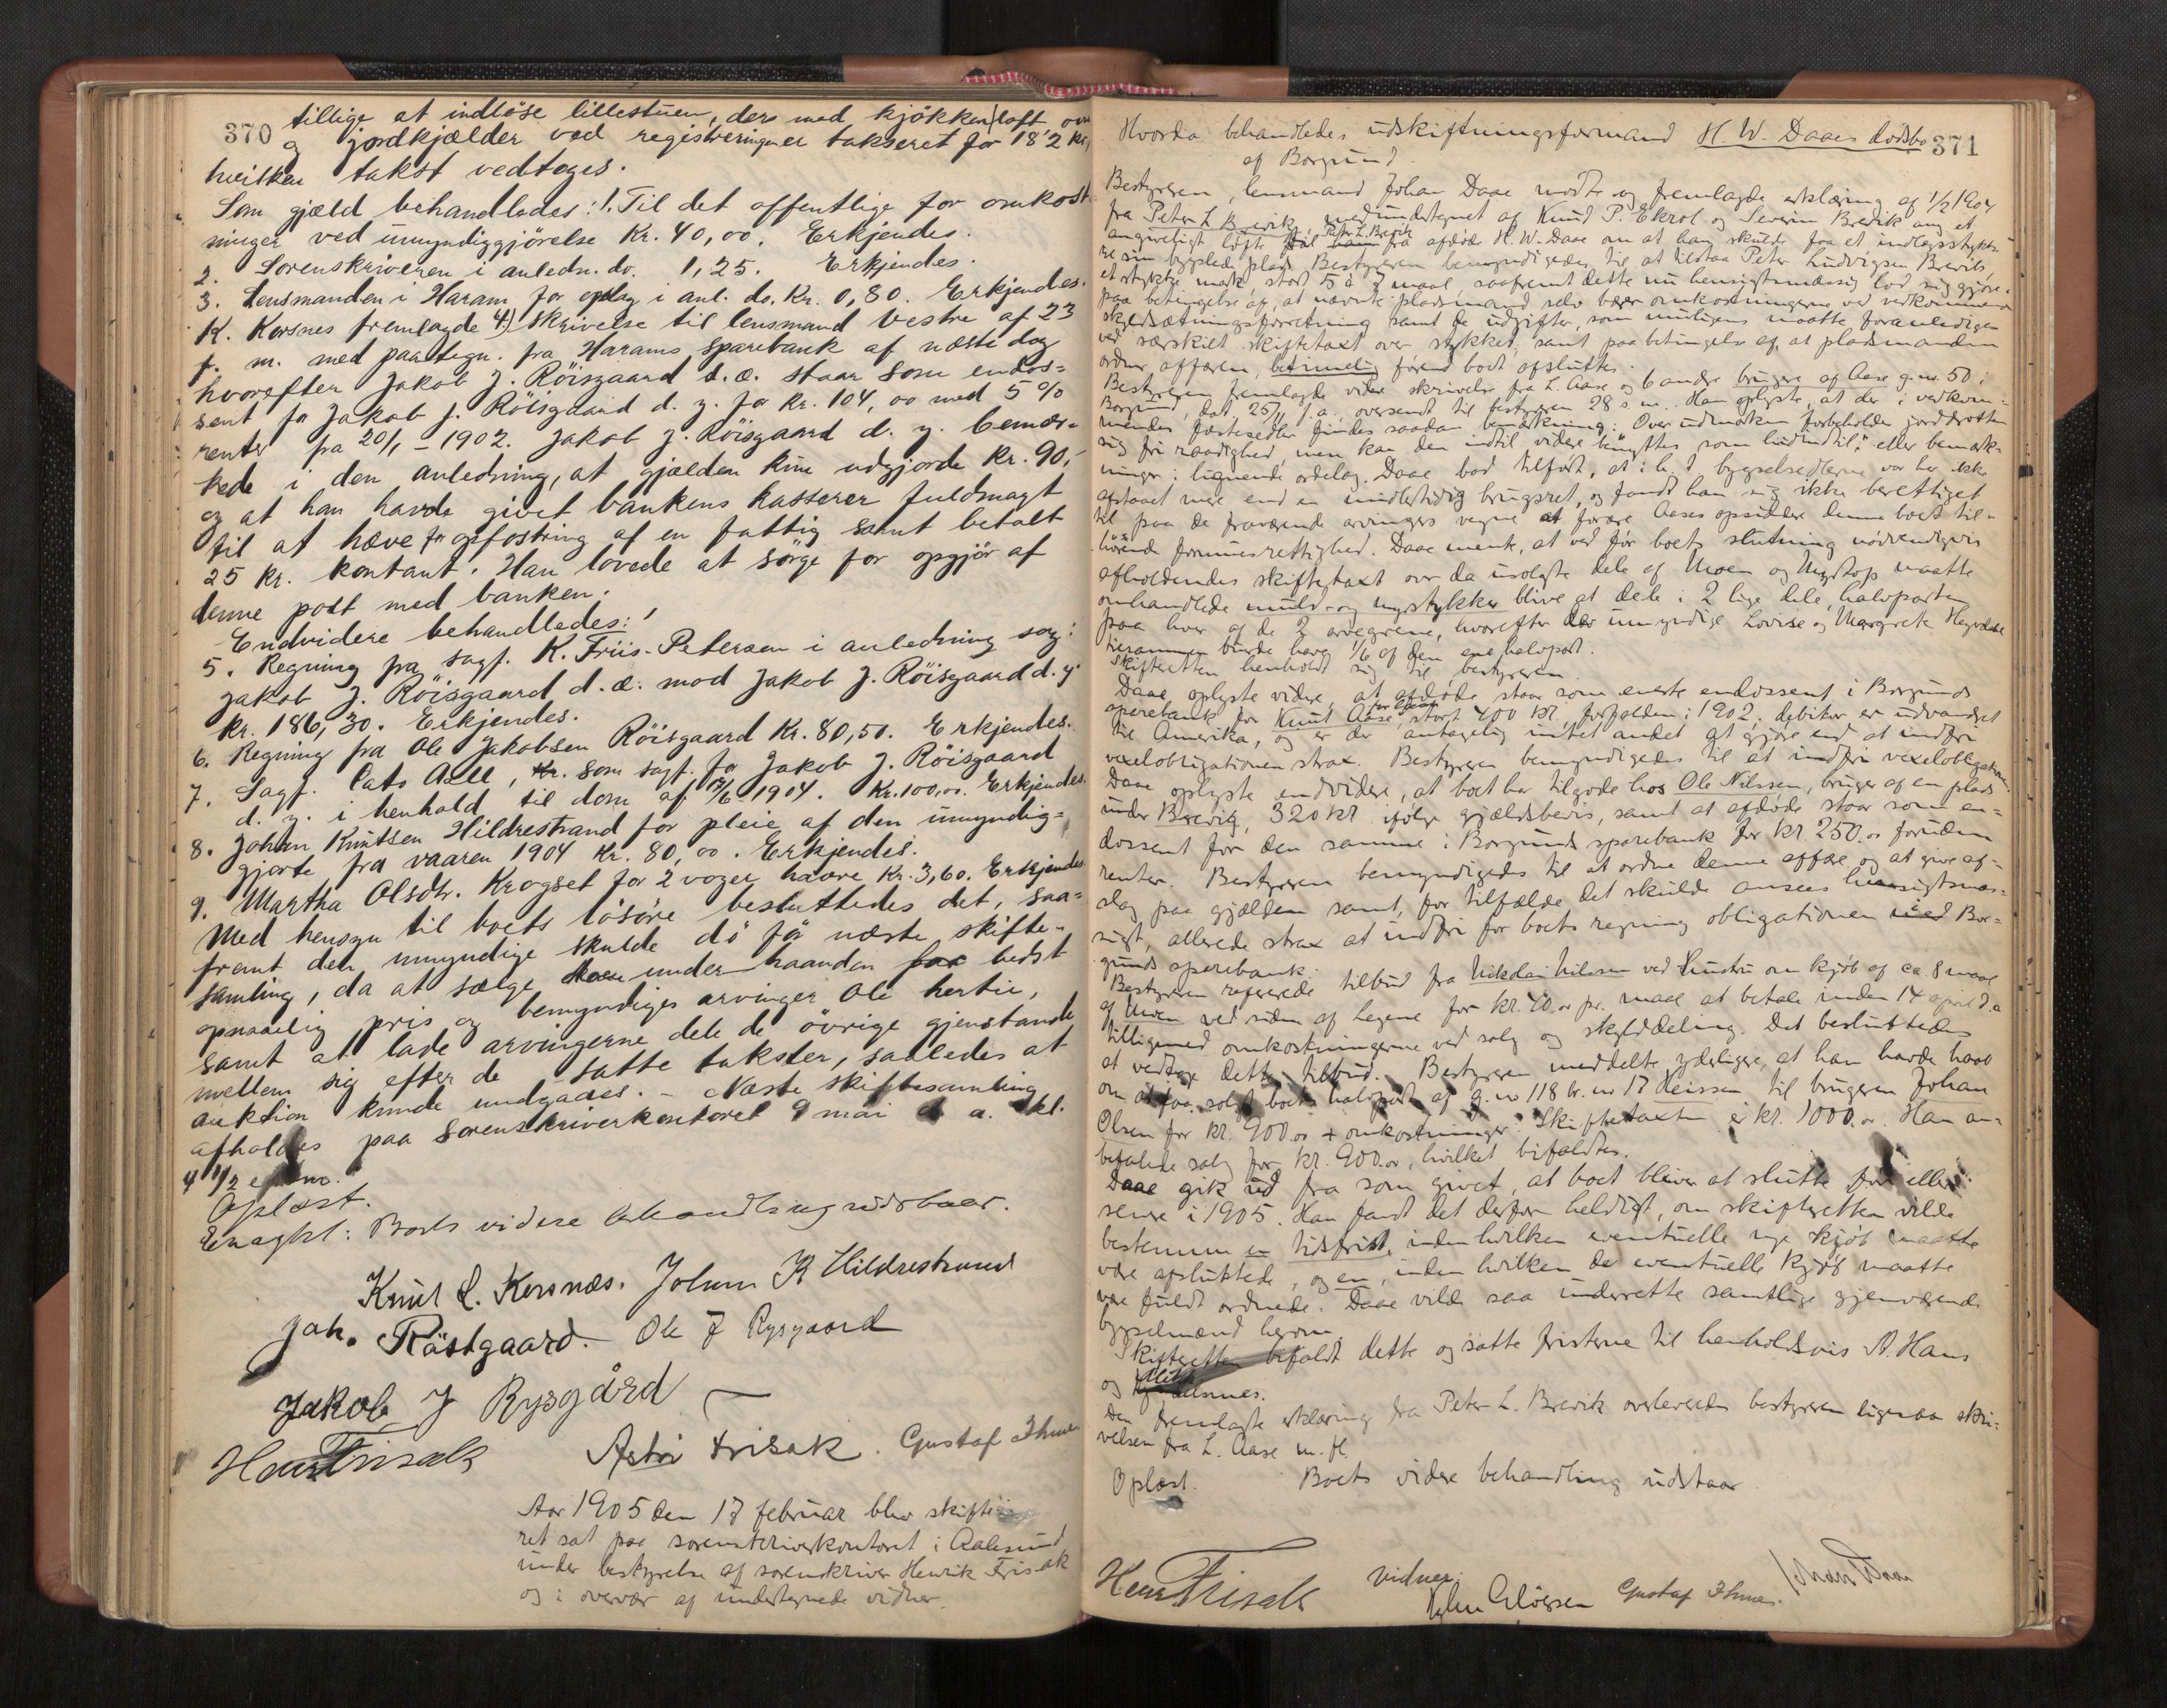 370
tillige at indløse lillestuen, ders med kjøkken, loft over
og jordkjælder ved registreringen er takseret for 182 kr,
hvilken takst vedtoges.
Som gjæld behandledes: 1. Til det offentlige for omkost
ninger ved umyndiggjørelse Kr. 40,00. Erkjendes.
2. Sorenskriveren i anledn. do. 1,25. Erkjendes.
3. Lensmanden i Haram for oplag i anl. do. Kr. 0,80. Erkjendes.
K. Korsnes fremlagde 4) skrivelse til lensmand Vestre af 23
f. m. med paategn. fra Harams sparebank af næste dag
hvorefter Jakob J. Röisgaard d. æ. staar som endos=
sent for Jakob J. Röisgaard d. y. for Kr. 104,00 med 5 %
renter fra 20/1 - 1902. Jakob J. Röisgaard d. y. bemær-
kede i den anledning, at gjælden kun udgjorde Kr. 90,-
og at han havde givet bankens kasserer fuldmagt
til at hæve for opfostring af en fattig samt betalt
25 Kr. kontant. Han lovede at sørge for opgjør af
denne post med banken.
Endvidere behandledes:
5. Regning fra sagf. K. Friis-Petersen i anledning sag:
Jakob J. Röisgaard d. æ. mod Jakob J. Röisgaard d. y.
Kr. 186,30. Erkjendes.
6. Regning fra Ole Jakobsen Röisgaard Kr. 80,50. Erkjendes.
7. Sagf. Cato Aall, som sagf. for Jakob J. Röisgaard
d. y. i henhold til dom af /6 1904. Kr. 100,00. Erkjendes.
8. Johan Knutsen Hildrestrand for pleie af den umyndig=
gjorte fra vaaren 1904 Kr. 80,00. Erkjendes.
9. Martha Olsdtr. Krogset for 2 voger havre Kr. 3,60. Erkjendes
Med hensyn til boets løsøre besluttedes det, saa=
fremt den umyndige skulde dø før næste skifte-
samling, da at sælge under haanden for bedst
opnaaelig pris og bemyndiges arvinger Ole hertil,
samt at lade arvingerne dele de øvrige gjenstande
mellem sig efter de satte takster, saaledes at
auktion kunde undgaaes. - Næste skiftesamling
afholdes paa sorenskriverkontoret 9 mai d. a. kl.
4 1/2 em.
Oplæst.
Eragtet: Boets videre behandling udstaaer.
Knut L. Korsnæs. Johan K Hildrestrand
Jak. Röstgaard. Ole J Rysgaard
Jakob J Rysgård
Henr Frisak Astri Frisak. Gustaf Ihme
Aar 1905 den 17 februar blev skifte-
ret sat paa sorenskriverkontoret i Aalesund
under bestyrelse af sorenskriver Henrik Frisak
og i overvær af undertegnede vidner.
371
Hvorda behandledes udskiftningsformand H. W. Daaes dødsbo
af Borgund.
Bestyreren, lensmand Johan Daae mødte og fremlagde erklæring af 1/2 1904
fra Peter L Brevik, medundertegnet af Knud P. Ekrol og Severin Brevik ang et
angiveligt løfte til Peter L. Brevik fra afdøde H. W. Daae om at han skulde faa et indlægsstykke
til sin bygslede plads. Bestyreren bemyndigedes til at tilstaa Peter Ludvigsen Brevik,
et stykke mark, stort 5 à 7 maal, saafremt dette nu hensigtsmæssig lod sig gjøre.
paa betingelse af, at nævnte pladsmand selv bær omkostningerne ved vedkommende
skyldsætningsforretning samt de udgifter, som muligens maatte foranlediges
ved særskilt skiftetaxt over stykket, samt paa betingelse af, at pladsmanden
ordner affæren, betimelig førend boet afsluttes.
Bestyreren fremlagde videre skrivelse fra L. Aase og 6 andre brugere af Aase g. no. 50 i
Borgund, dat. 25/11 f. a., oversendt til bestyreren 28 s. m. Han oplyste, at der i vedkom-
mendes fæstesedler findes saadan bemærkning: "Over udmarken forbeholder jorddrotten
sig fri raadighed, men kan den indtil videre benyttes som hidindtil." eller bemærk-
ninger i lignende ordelag. Daae bad tilført, at i h. t. bygselsedlerne var her ikke
afstaaet mere end en midlertidig brugsret, og fandt han sig ikke berettiget
til paa de fraværende arvingers vegne at forære Aases opsiddere denne boet til-
hørende formuesrettighed. Daae mente, at ved før boets slutning nødvendigvis
afholdendes skiftetaxt over da usolgte dele af Moen og Myrstop maatte
omhandlede muld- og myrstykker blive at dele i 2 lige dele, halvparten
paa hver af de 2 arvegrene, hvorefter der umyndige Lovise og Margrete Høgvold
tilsammen burde have 1/6 af den ene halvpart.
Skifteretten henholdt sig til bestyreren.
Daae oplyste videre, at afdøde staar som eneste endossent i Borgunds
sparebank for Knut Aase, stort 400 kr., forfalden i 1902; debitor er udvandret
til Amerika, og er der antagelig intet andet at gjøre end at indfri
vexelobligationen strax. Bestyreren bemyndigedes til at indfri vexelobligationen.
Daae oplyste endvidere, at boet har tilgode hos Ole Nilssen, bruger af en plads
under Brevig, 320 kr ifølge gjældsbevis, samt at afdøde staar som en=
dossent for den samme i Borgunds sparebank for kr 250.00 foruden
renter. Bestyreren bemyndigedes til at ordne denne affære og at give af=
slag paa gjælden samt, for tilfælde det skulde ansees hensigtsmæs=
sigt, allerede strax at indfri for boets regning obligationen i Bor=
gunds sparebank.
Bestyreren refererede tilbud fra Nikolai Nilssen ved hustru om kjøb af ca. 8 maal
af Moen ved siden af Legene for kr. 40.00 pr. maal at betale inden 14 april d. a
tilligemed omkostningerne ved salg og skylddeling. Det besluttedes
at vedtage dette tilbud. Bestyreren meddelte yderligere, at han havde haab
om at faa solgt boets halvpart af g. no 118 br. no 17 Heissen til brugeren Johan
Olsen for kr. 900.00 + omkostninger. Skiftetaxten er kr. 1000.00. Han an=
befalede salg for kr. 900.00, hvilket bifaldtes.
Daae gik ud fra som givet, at boet bliver at slutte før eller
senere i 1905. Han fandt det derfor heldigt, om skifteretten vilde
bestemme en tidsfrist, inden hvilken eventuelle nye kjøb maatte
være afsluttede, og en, inden hvilken de eventuelle kjøb maatte
være fuldt ordnede. Daae vilde saa underrette samtlige gjenværende
bygselmænd herom.
Skifteretten bifaldt dette og satte fristerne til henholdsvis St. Hans
og
Den fremlagte erklæring fra Peter L. Brevik overleveredes bestyreren ligesaa skri-
velsen fra L. Aase m. fl.
Oplæst. Boets videre behandling udstaar
Henr Frisak vidner: Gustaf Ihme. Johan Daae